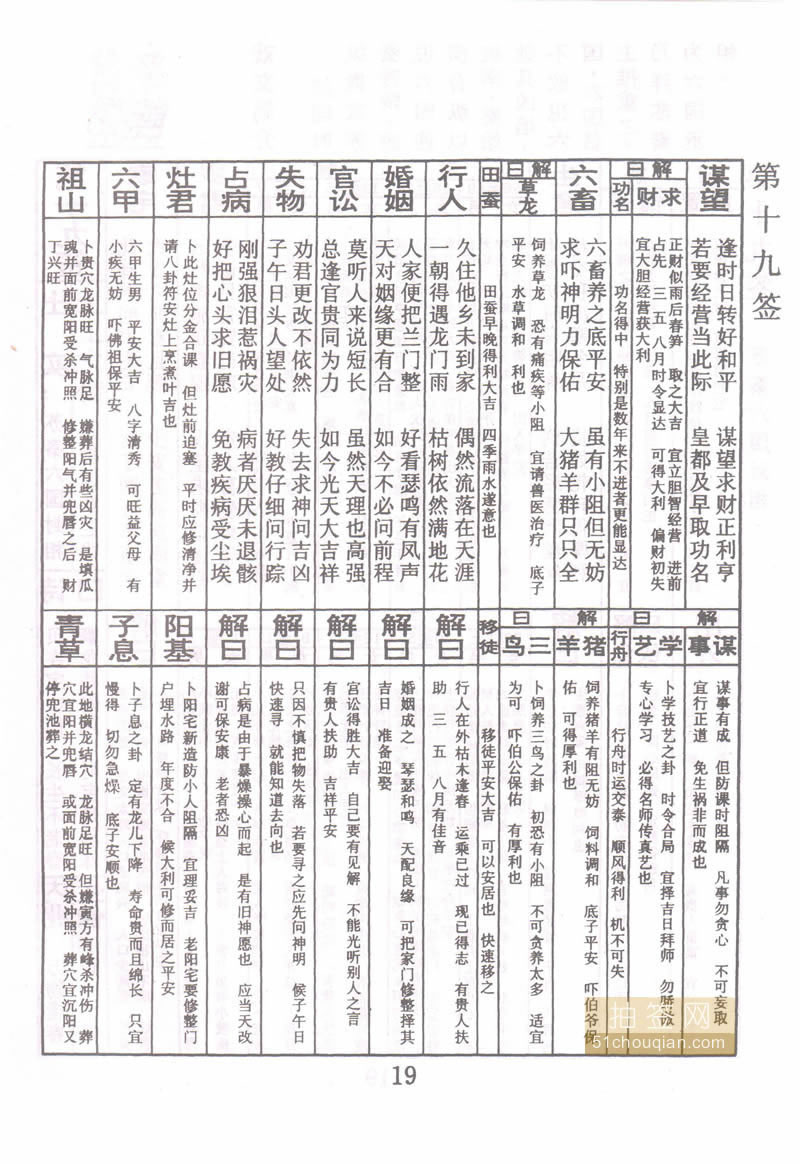 第十九签
谋望
逢时日转好和平 谋望求财正利亨
若要经营当此际 皇都及早取功名
解曰
求财
正财似雨后春笋 取之大吉 宜立胆智经营 进前
占先 三 五 八月时令显达 可得大利 偏财初失
宜大胆经营获大利
功名
功名得中 特别是数年来不进者更能显达
六畜
六畜养之底平安 虽有小阻但无妨
求吓神明力保佑 大猪羊群只只全
解曰
草龙
饲养草龙 恐有痛疾等小阻 宜请兽医治疗 底子
平安 水草调和 利也
田蚕
田蚕早晚得利大吉 四季雨水遂意也
行人
久住他乡未到家 偶然流落在天涯
一朝得遇龙门雨 枯树依然满地花
婚姻
人家便把兰门整 好看瑟鸣有凤声
天对姻缘更有合 如今不必问前程
官讼
莫听人来说短长 虽然天理也高强
总逢官贵同为力 如今光天大吉祥
失物
劝君更改不依然 失去求神问吉凶
子午日头人望处 好教仔细问行踪
占病
刚强狠泪惹祸灾 病者厌厌未退骸
好把心头求旧愿 免教疾病受尘埃
灶君
卜此灶位分金合课 但灶前迫塞 平时应修清净并
请八卦符安灶上烹煮叶吉也
六甲
六甲生男 平安大吉 八字清秀 可旺益父母 有
小疾无妨 吓佛祖保平安
祖山
卜贵穴龙脉旺 气脉足 嫌葬后有些凶灾 是填瓜
魂并面前宽阳受杀冲照 修整阳气并兜唇之后 财
丁兴旺
解曰
谋事
谋事有成 但防课时阻隔 凡事勿贪心 不可妄取
宜行正道 免生祸非而成也
学艺
卜学技艺之卦 时令合局 宜择吉日拜师 勿骄傲
专心学习 必得名师传真艺也
行舟
行舟时运交泰 顺风得利 机不可失
解曰
猪羊
饲养猪羊有阻无妨 饲料调和 底子平安 吓伯爷保
佑 可得厚利也
三鸟
卜饲养三鸟之卦 初恐有小阻 不可贪养太多 适宜
为可 吓伯公保佑 有厚利也
移徒
移徒平安大吉 可以安居也 快速移之
解曰
行人在外枯木逢春 运乘已过 现已得志 有贵人扶
助 三 五 八月有佳音
解曰
婚姻成之 琴瑟和鸣 天配良缘 可把家门修整择其
吉日 准备迎娶
解曰
宫讼得胜大吉 自己要有见解 不能光听别人之言
有贵人扶助 吉祥平安
解曰
只因不慎把物失落 若要寻之应先问神明 候子午日
快速寻 就能知道去向也
解曰
占病是由于暴燥操心而起 是有旧神愿也 应当天改
谢可保安康 老者恐凶
阳基
卜阳宅新造防小人阻隔 宜理妥吉 老阳宅要修整门
户埋水路 年度不合 候大利可修而居之平安
子息
卜子息之卦 定有龙儿下降 寿命贵而且绵长 只宜
慢得 切勿急燥 底子安顺也
青草
此地横龙结穴 龙脉足旺 但嫌寅方有峰杀冲伤 葬
穴宜阳并兜唇 或面前宽阳受杀冲照 葬穴宜沉阳又
停兜池葬之
抽签网
51chouqian.com
19